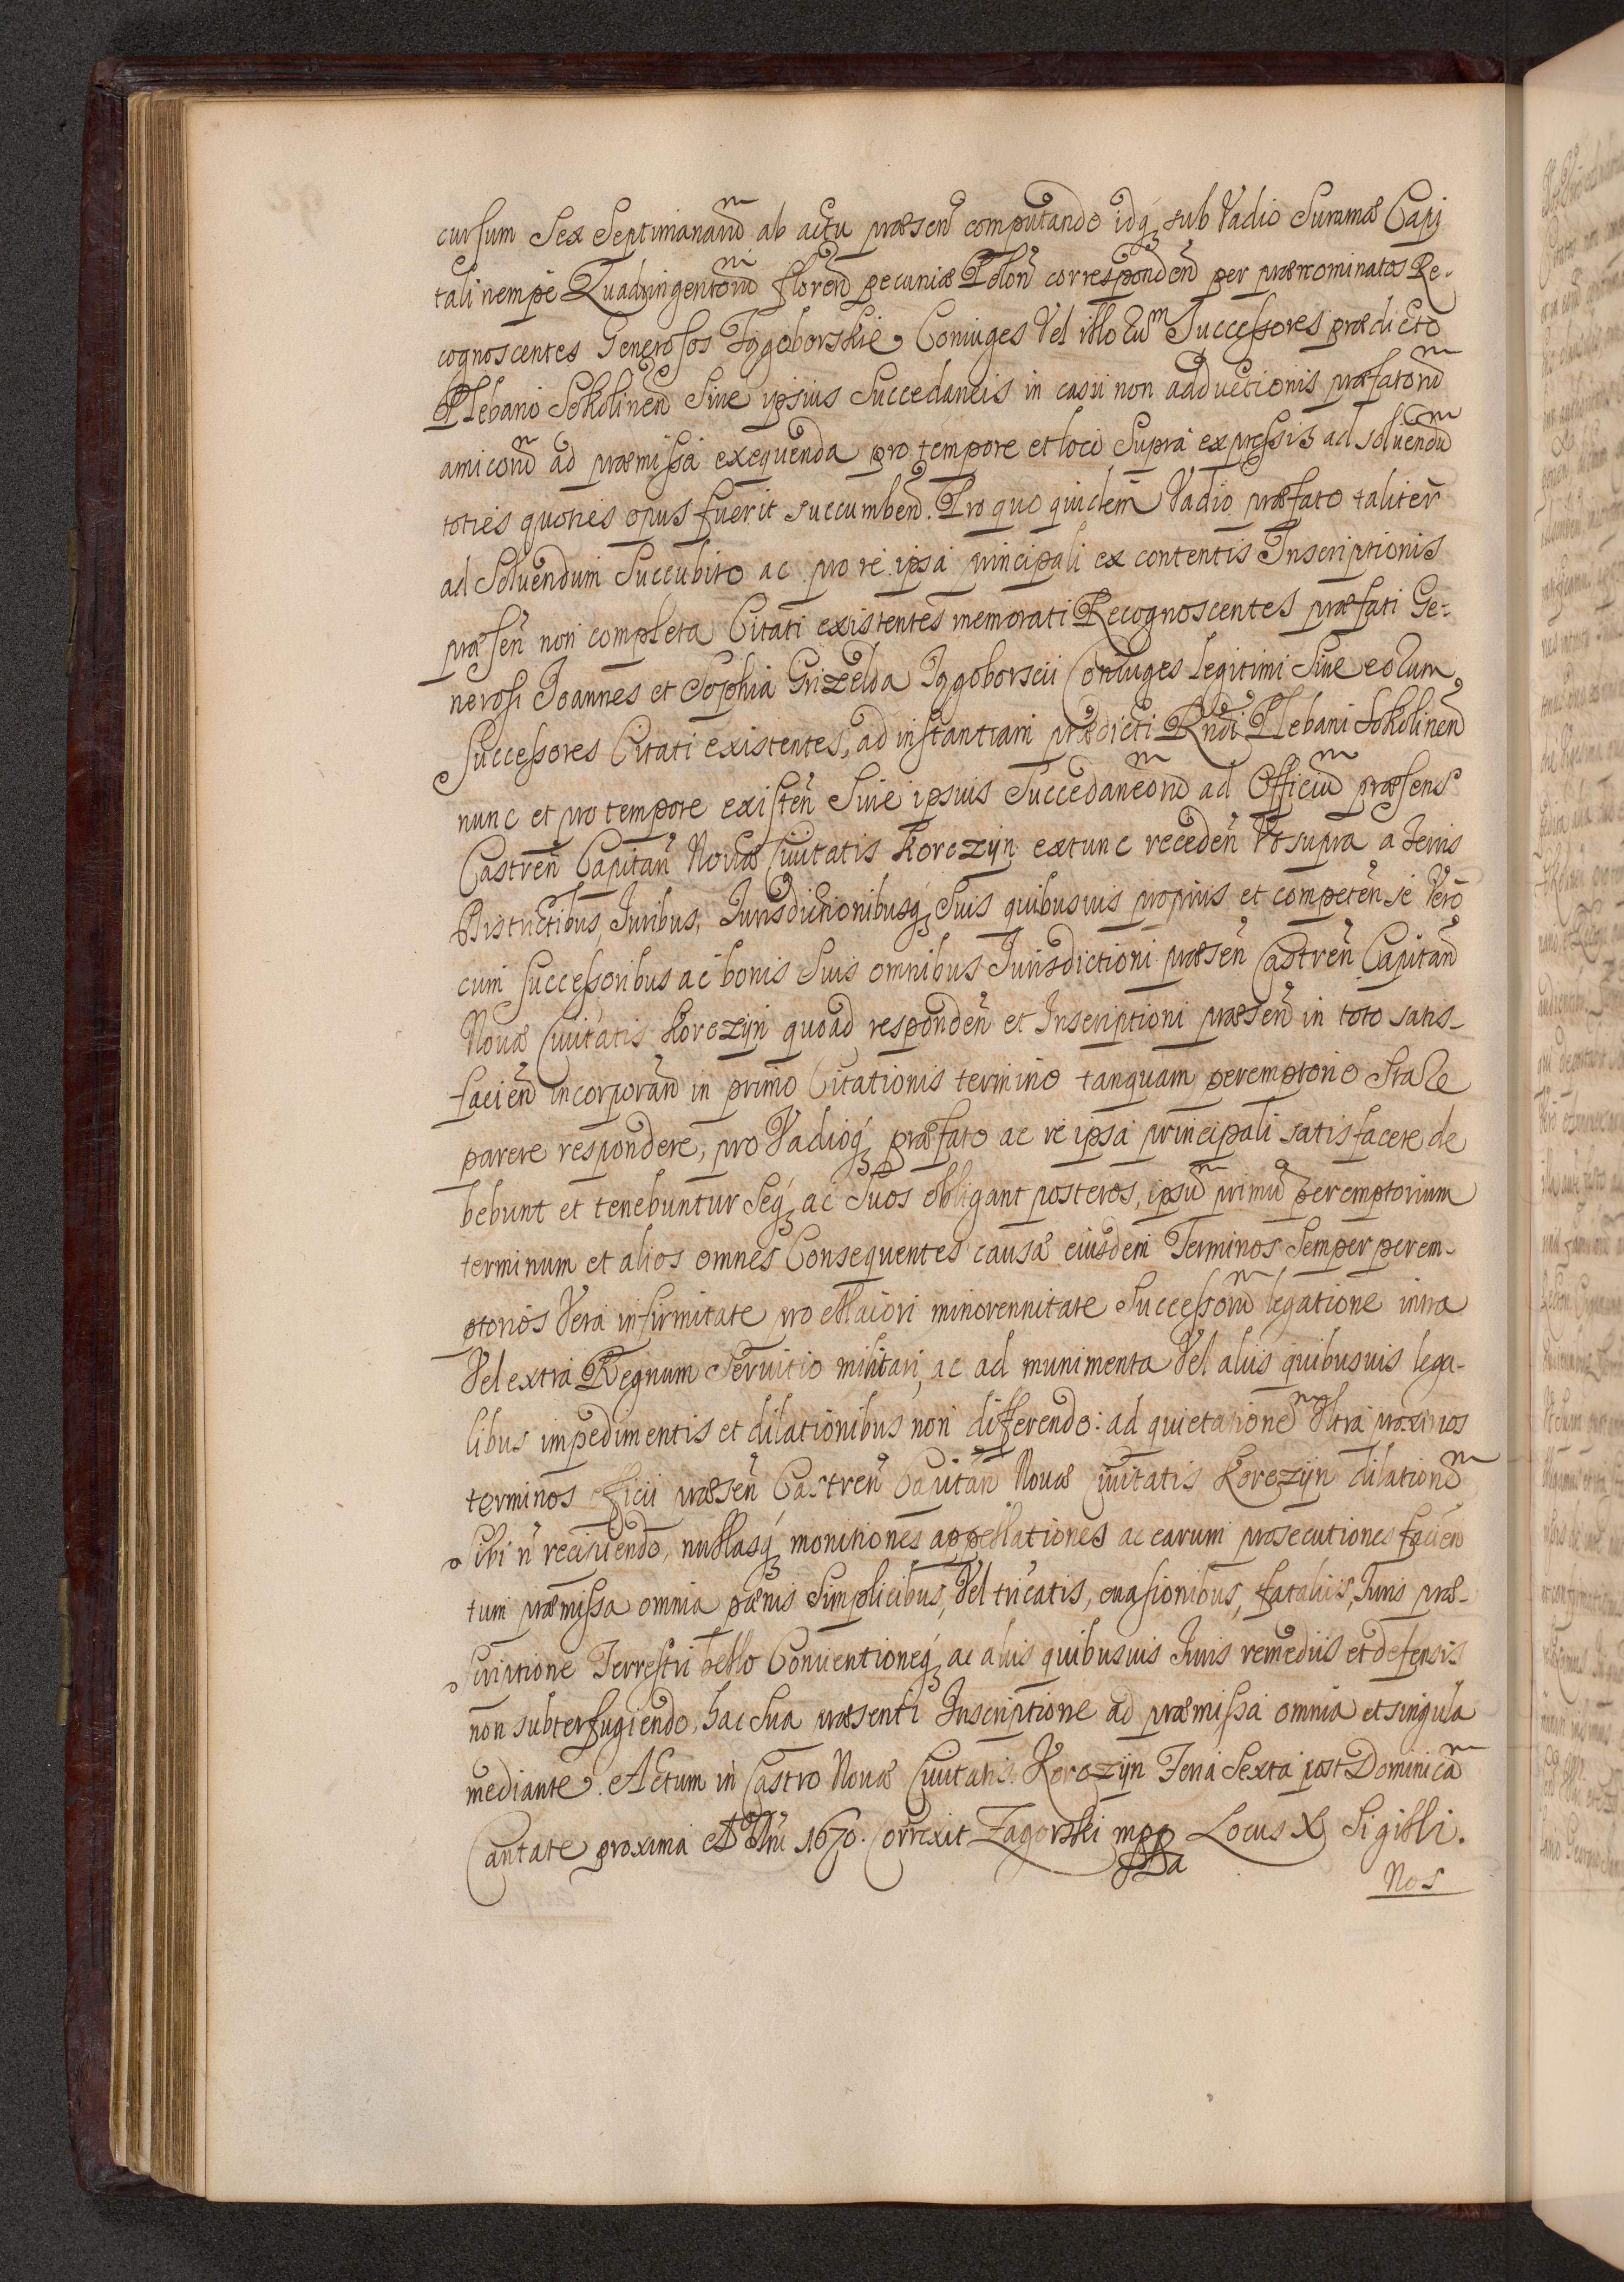 cursum Sex Septimanarũ ab actu præsenˢ computando idq́ sub Vadio Summæ Capi
tali nempe Quadringentorũ florenˢ pecuniæ Polonˢ correspondenˢ per prænominatos Re-
cognoscentes Generosos Jzgoborskie Coniuges Vel illorum Successores prædicto
Plebano Sokolinenˢ Siue ipsius Succedaneis in casu non adductionis præfatorũ
amicorũ ad præmissa exequenda pro tempore et loco Supra expressis ad soluendũ
toties quoties opus fuerit succumbenˢ. Pro quo quidem Vadio præfato taliter
ad Soluendum Succubito ac pro re ipsa principali ex contentis Inscriptionis
præsenˢ non completa Citati existentes memorati Recognoscentes præfati Ge-
nerosi Joannes et Sophia Grizelda Jzgoborscii Coniuges legitimi Siue eorum
Successores Citati existentes, ad instantiam prædicti Rndi Plebani Sokolinenˢ
nunc et pro tempore existenˢ Siue ipsuis Succedaneorũ ad Officiũ præsens
Castrenˢ Capitanˢ Nouæ Ciuitatis Korczyn extunc recedenˢ Vt supra a Terris
Districtibus, Juribus, Jurisdictionibusq́ Suis quibusuis propriis et competenˢ se Vero
cum Successoribus ac bonis Suis omnibus Jurisdictioni præsenˢ Castrenˢ Capitanˢ
Nouæ Ciuitatis Korczyn quoad respondenˢ et Inscriptioni præsenˢ in toto satis-
facienˢ incorporanˢ in primo Citationis termino tanquam peremptorio Stare
parere respondere, pro Vadioq́ præfato ac re ipsa principali satisfacere de
bebunt et tenebuntur Seq́ ac Suos obligant posteros, ipsũ primũ peremptorium
terminum et alios omnes Consequentes causæ eiusdem Terminos Semper perem-
ptorios Vera infirmitate pro Maiori minorennitate Successorũ legatione intra
Vel extra Regnum Seruitio militari, ac ad munimenta Vel aliis quibusuis lega-
libus impedimentis et dilationibus non differendo: ad quietationẽ Vltra proximos
terminos Officii præsenˢ Castrenˢ Capitanˢ Nouæ Ciuitatis Korczyn dilationẽ
Sibi ñ recipiendo, nullasq́ monitiones appellationes ac earum prosecutiones facienˢ
tum præmissa omnia pænis Simplicibus, Vel tricatis, euasionibus, fataliis, Juris præ-
scriptione Terrestri bello Conuentioneq́ ac aliis quibusuis Juris remediis et defensis
non subterfugiendo, hac sua præsenti Inscriptione ad præmissa omnia et singula
mediante. Actum in Castro Nouæ Ciuitatis Korczyn Feria Sexta post Dominicã
Cantate proxima A Dñi 1670. Correxit Zagorski mpp Locus X Sigilli.
Nos